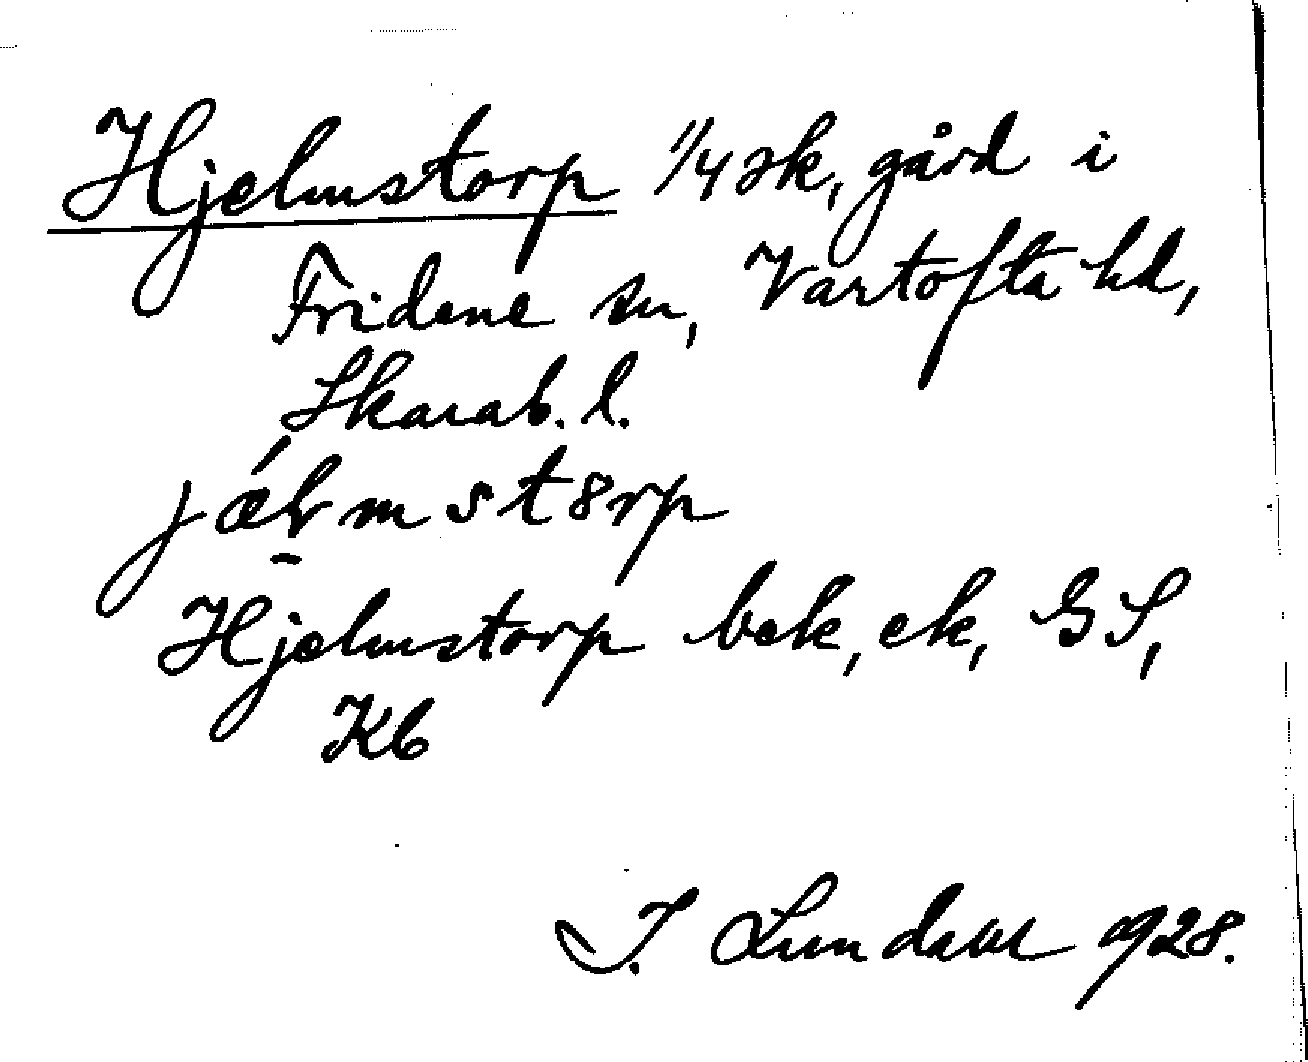 Hjelmstorp 1/4 sk, gård i
Fridene sn, Vartofta hd,
Skarab. l.
Hjelmstorp bek, ek, GS,
Kb
I. Lundahl 1928.